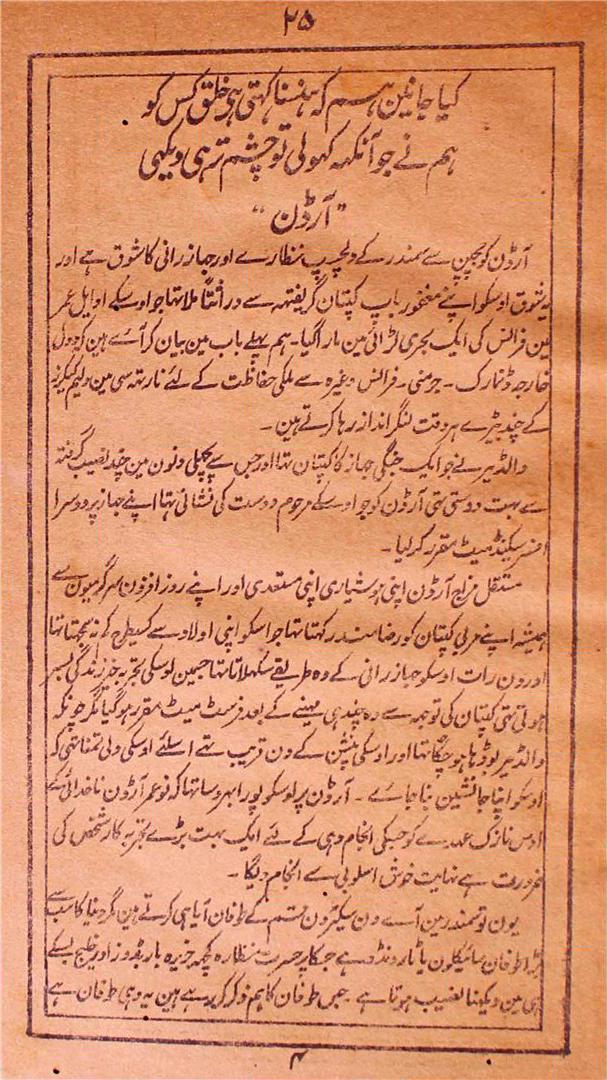 ۲۵
کیا جانین ہم کہ ہنسنا کہتی ہی خلق کس کو
ہم نے جو آنکھہ کھولی تو چشم تر ہی دیکھی
"آرڈن"
آرڈن کو بچپن سے سمندر کے دلچسپ نظارے اور جہازرانی کا شوق ہے اور
یہ شوق اوسکو اپنے مغفور باپ کپتان گریفتھہ سے دراثتاً ملا تہا جو اوسکے اوایل عمر
مین فرانس کی ایک بحری لڑائی مین مارا گیا۔ ہم پہلے باب مین بیان کر آے ہین کہ دول
خارجہ ڈنمارک۔ جرمنی۔ فرانس وغیرہ سے ملکی حفاظت کے لئے نارتھہ سی مین ولیم
کے چند بیڑے ہر وقت لنگر انداز رہا کرتے ہین۔
والڈیر نے جو ایک جنگی جہاز کا کپتان تہا اور جس سے پچھلی دنون مین چند نصیب
سے بہت دوستی تہی آرڈن کو جو اوسکے مرحوم دوست کی نشانی تہا اپنے جہاز پر دوسرا
افسر سکینڈ میٹ مقرر کر لیا۔
مستقل مزاج آرڈن اپنی ہوشیاری اپنی مستعدی اور اپنے روز افزون سرگرمیون سے
ہمیشہ اپنے مربی کپتان کو رضامند رکہتا تہا جو اسکو اپنی اولاد سے کسیطرح کم نہ سمجہتا تہا
اور دن رات اوسکو جہازرانی کے وہ طریقے سکھلاتا تہا جسمین اوسکی تجربہ خیز زندگی بسر
ہوتی تہی کپتان کی توجہہ سے وہ چند ہی مہینے کے بعد فرسٹ میٹ مقرر ہو گیا مگر چونکہ
والڈیر بوڑہا ہو چکا تہا اور اوسکی پنشن کے دن قریب تہے اسلئے اوسکی دلی تمنا تہی کہ
اوسکو اپنا جانشین بنا جاے۔ آرڈن پر اوسکو پورا بہروسا تہا کہ نوعمر آرڈن ناخدائی کے
اوس نازک عہدے کو جسکی انجام دہی کے لئے ایک بہت بڑے تجربہ کار شخص کی
ضرورت ہے نہایت خوش اسلوبی سے انجام دیگا۔
یون تو سمندر مین آے دن سیکڑون قسم کے طوفان آیا ہی کرتے ہین مگر دنیا کا سب سے
بڑا طوفان سائیکلون یا ٹارونڈو ہے جسکا پرحسرت نظارہ کچھہ جزیرہ باربڈوز اور خلیج
ہی مین دیکہنا نصیب ہوتا ہے۔ جس طوفان کا ہم ذکر کر رہے ہین یہ وہی طوفان ہے
۴